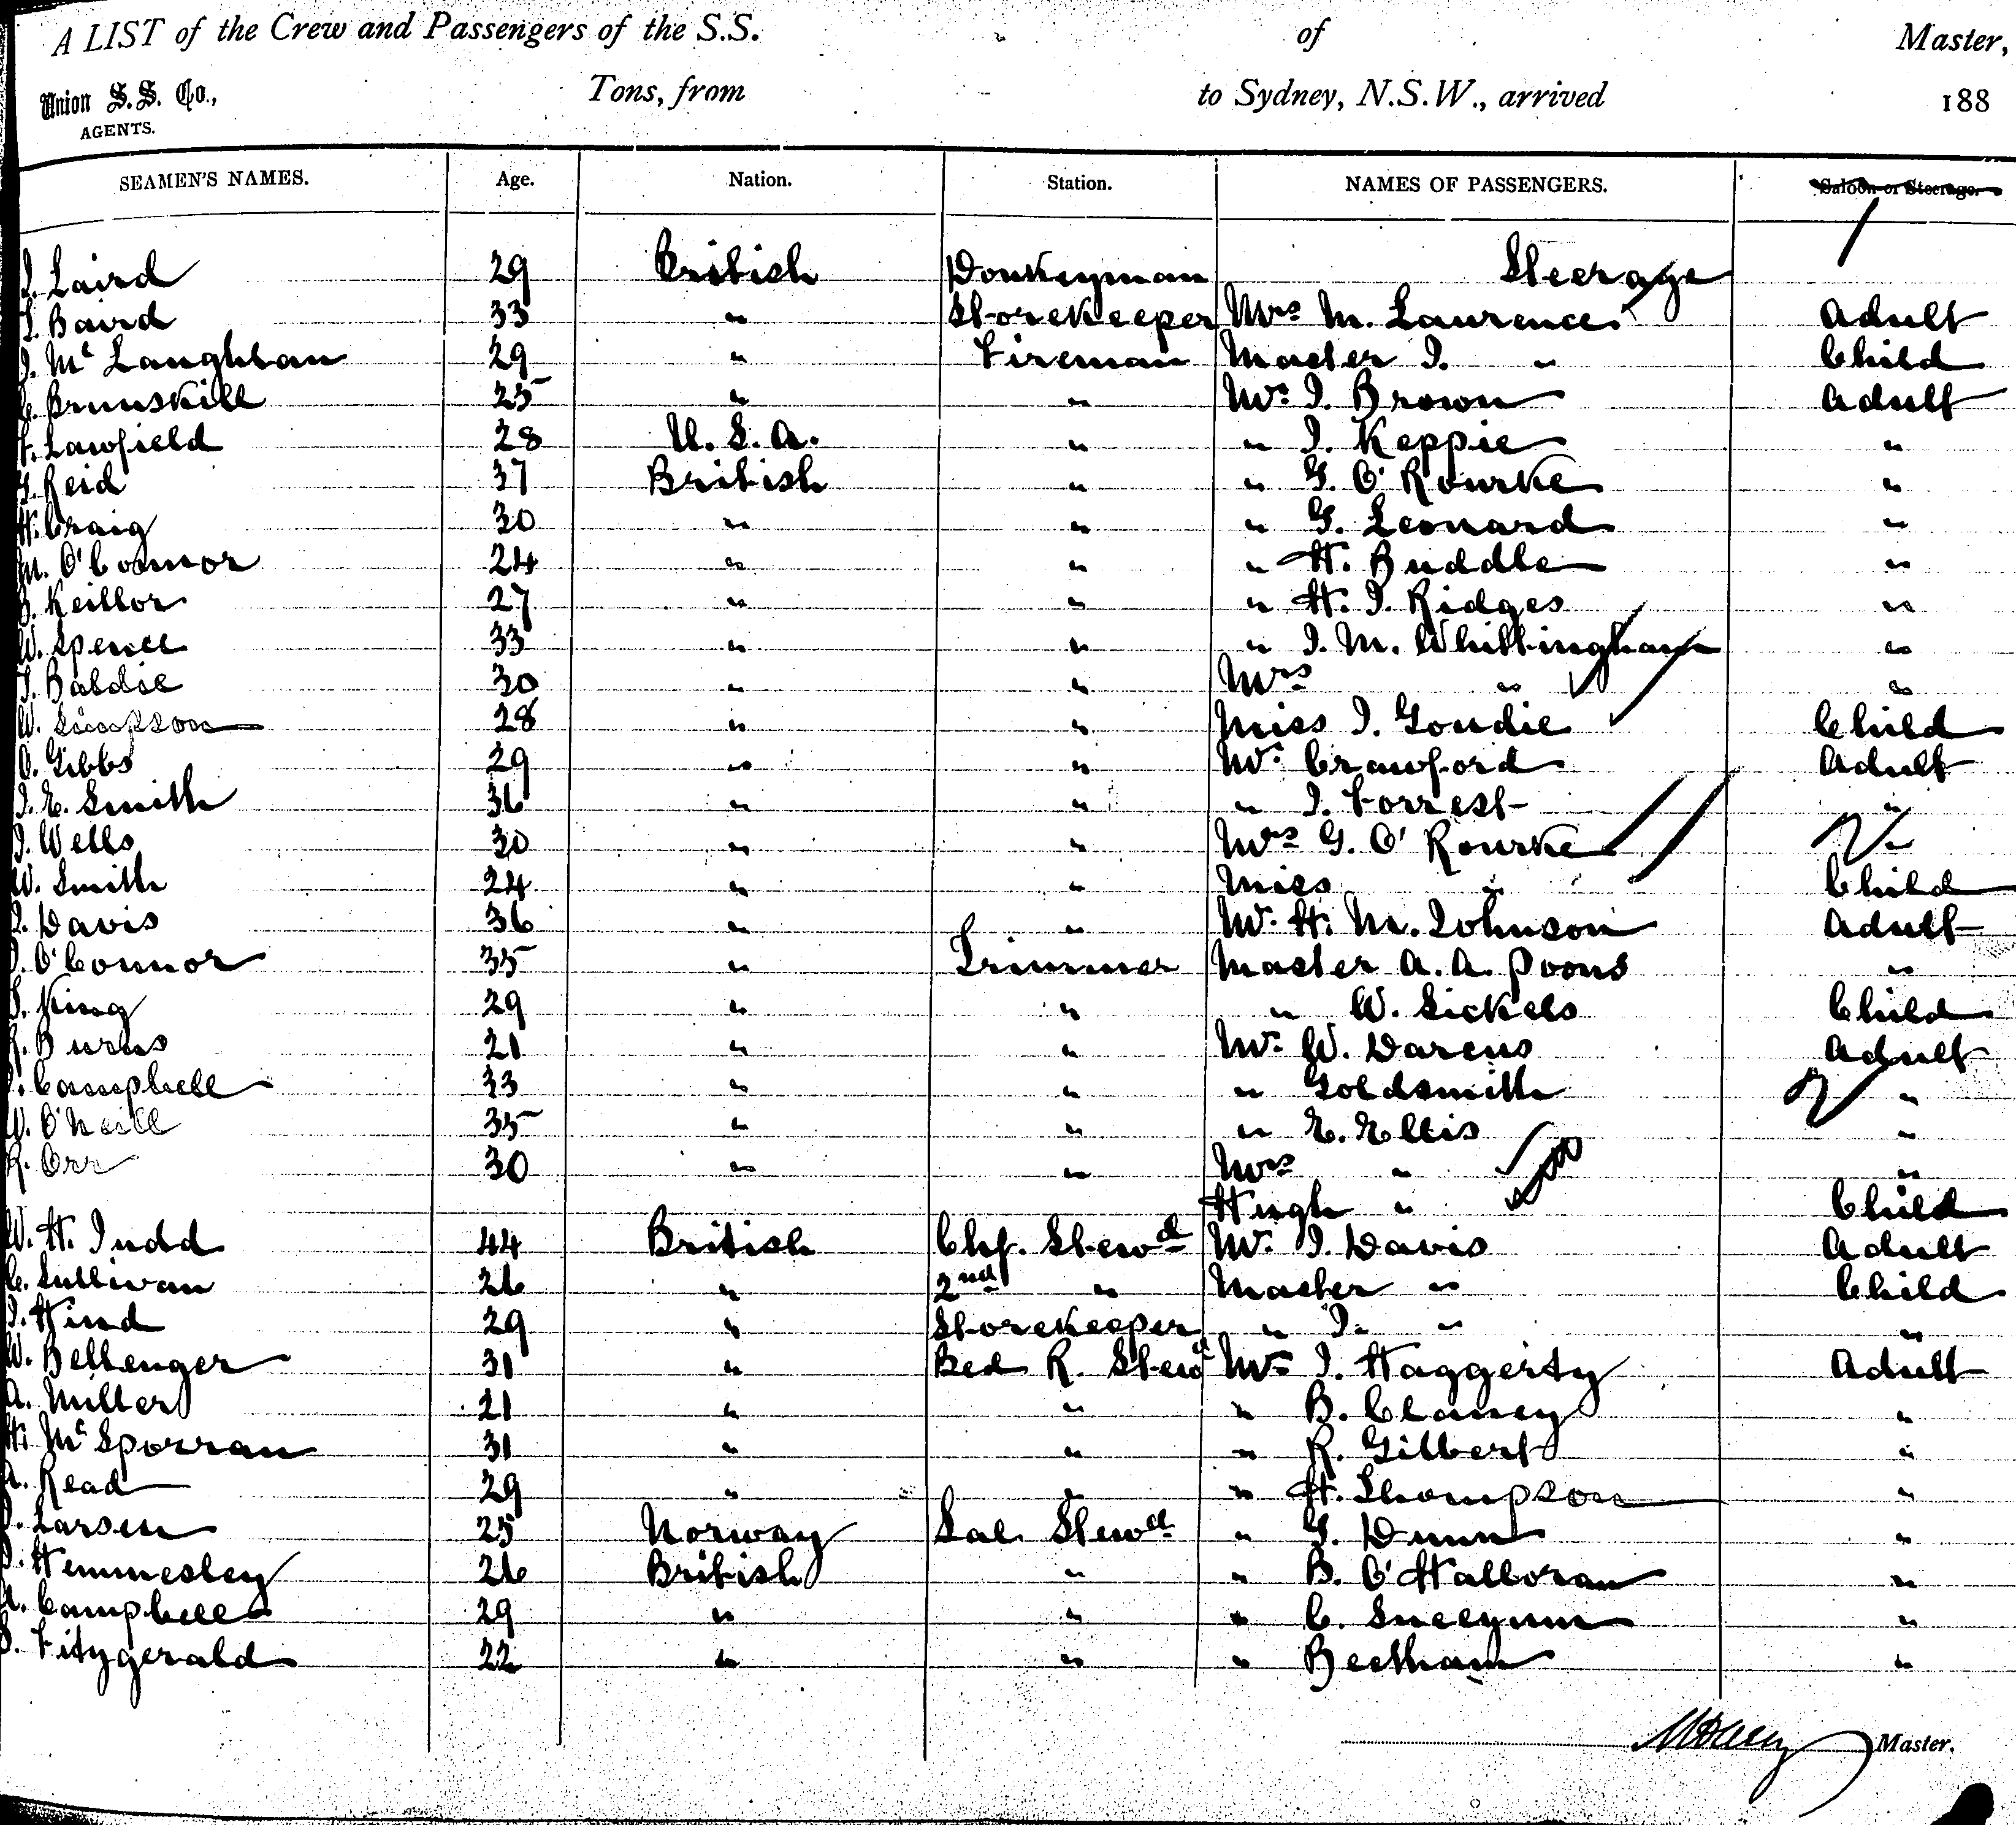 A LIST of the Crew and Passengers of the S.S. of Master,
Union S. S. Co., Tons, from to Sydney, N.S.W., arrived 188
AGENTS.
SEAMEN'S NAMES. Age. Nation. Station. NAMES OF PASSENGERS. Saloon or Steerage.
Laird 29 British Donkeyman Steerage
Baird 33 " Storekeeper Mrs M. Laurence Adult
J. Mc Laughlan 29 " Fireman Master J. " Child
Brunskill 25 " " Mr J. Brown Adult
Lawfield 28 U. S. A. " " J. Keppie "
Reid 37 British " " G. O'Rourke "
H. Craig 30 " " " G. Leonard "
M. O'Connor 24 " " " H. Buddle "
Keillor 27 " " " H. J. Ridges "
W. Spence 33 " " " J. M. Whittingham "
Baldie 30 " " Mrs " "
W. Simpson 28 " " Miss J. Goudie Child
Gibbs 29 " " Mr Crawford Adult
J. E. Smith 36 " " " J. Forrest "
J. Wells 30 " " Mrs G. O'Rourke "
W. Smith 24 " " Miss " Child
Davis 36 " " Mr H. M. Johnson Adult
O'Connor 35 " Trimmer Master A. A. Poons "
King 29 " " " W. Sickels Child
R. Burns 21 " " Mr W. Darcus Adult
Campbell 33 " " " Goldsmith "
W. O'Neill 35 " " " E. Ellis "
R. Orr 30 " " Mrs " "
Hugh " Child
W. H. Judd 44 British Chf. Stewd Mr J. Davis Adult
C. Sullivan 26 " 2nd " Master " Child
Hind 29 " Storekeeper " J. " "
W. Bellenger 31 " Bed R. Stewd Mr J. Haggerty Adult
A. Miller 21 " " " B. Clancy "
H. McSporran 31 " " " R. Gilbert "
Read 29 " " " H. Thompson "
Larsen 25 Norway Sal. Stewd " G. Dunn "
Hemmesley 26 British " " B. O'Halloran "
Campbell 29 " " " C. "
Fitzgerald 22 " " " Beetham "
Master.